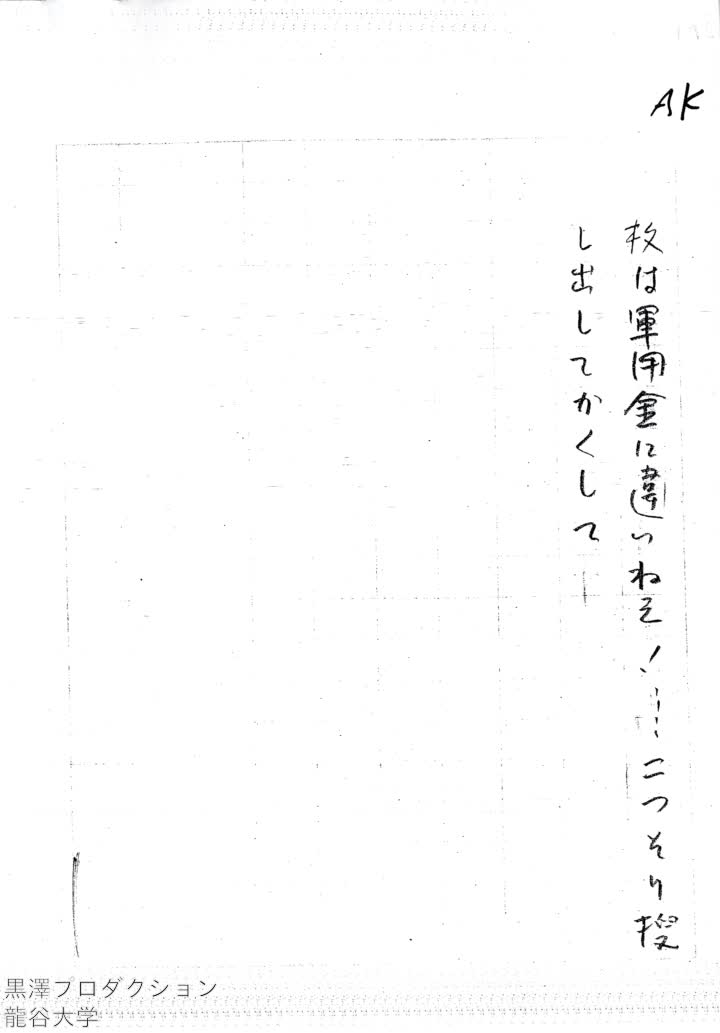 AK
枚は軍用金に違いねえ！……こつそり捜
し出してかくして―
黒澤プロダクション
龍谷大学